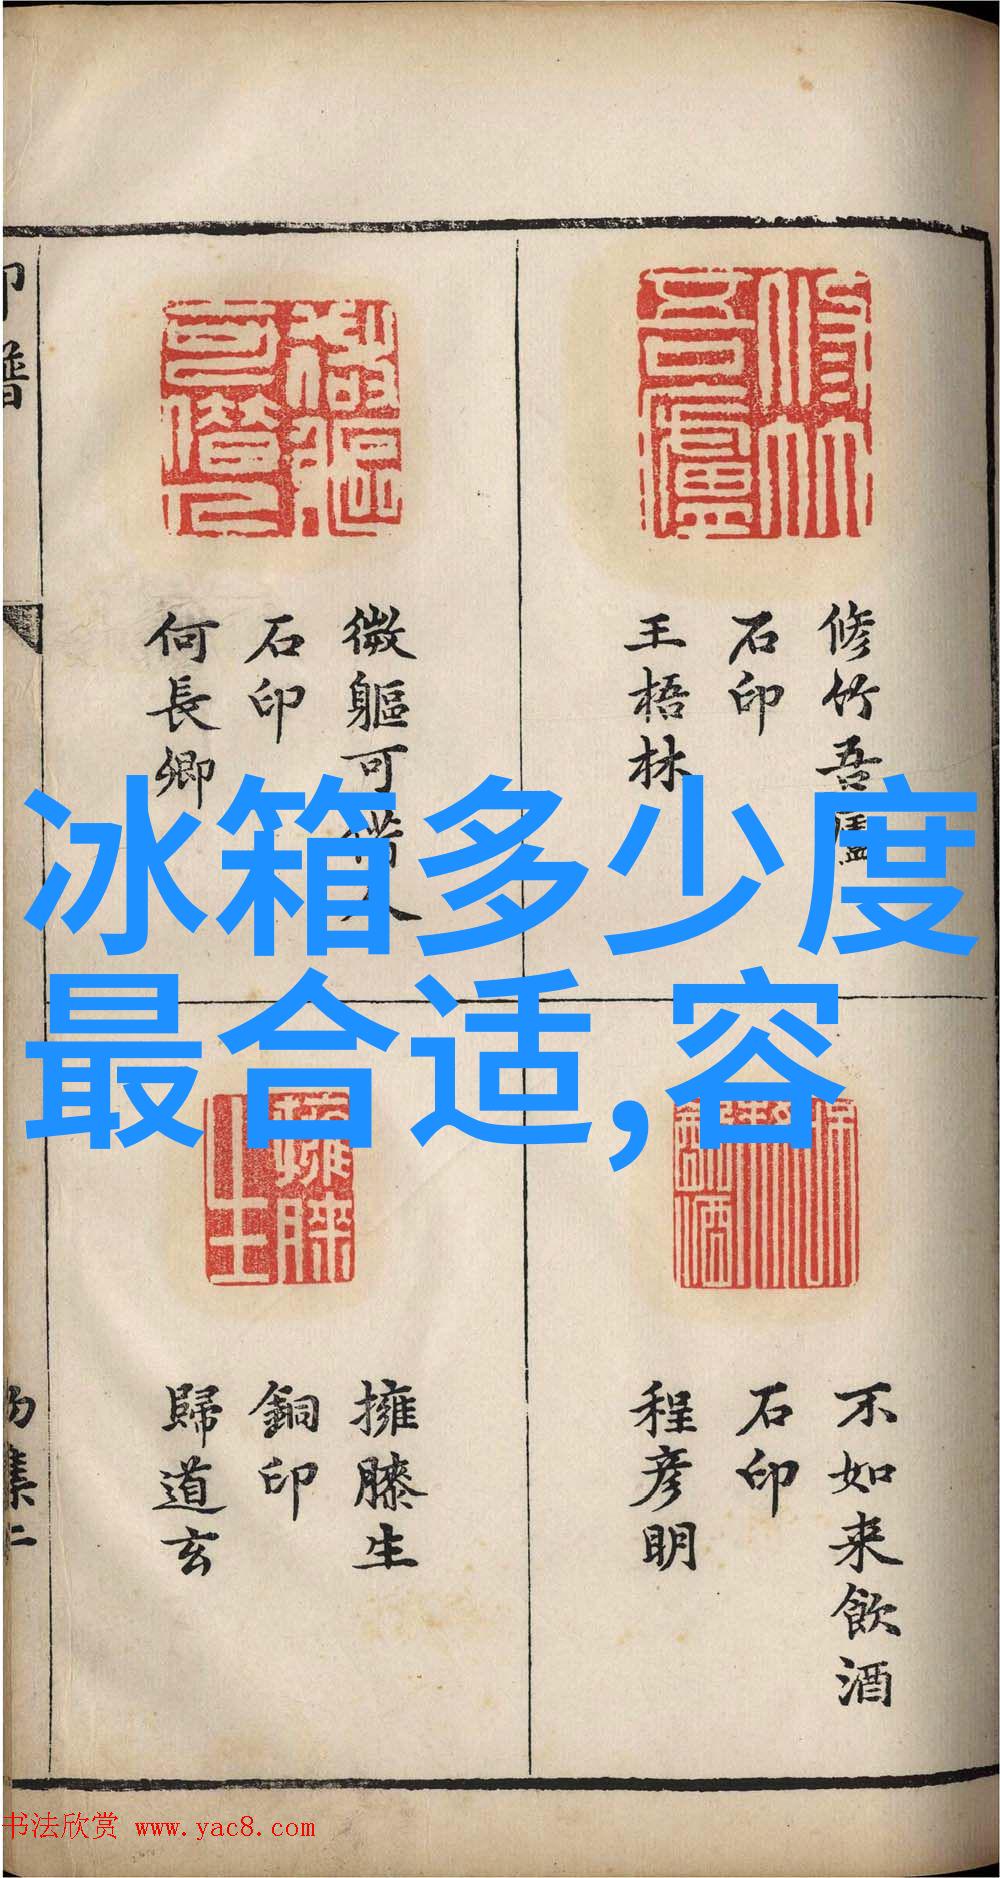 冰箱多少度
最合适,容
修竹吾廬
石印
王梧林
微軀可惜人
石印
何長卿
不如来飲酒
石印
程彦明
擁膝生
銅印
歸道玄
印譜
书法欣赏 www.yac8.com